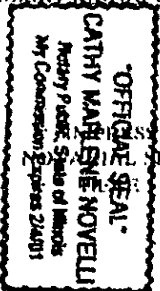 "OFFICIAL SEAL"
CATHY MARLENE NOVELLI
Notary Public, State of Illinois
My Commission Expires 2/4/01